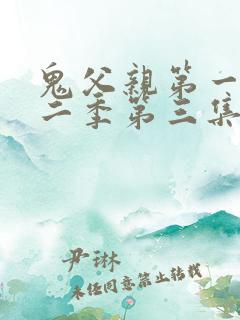 鬼父親第一
二季第三集
尹琳
未经同意禁止转载